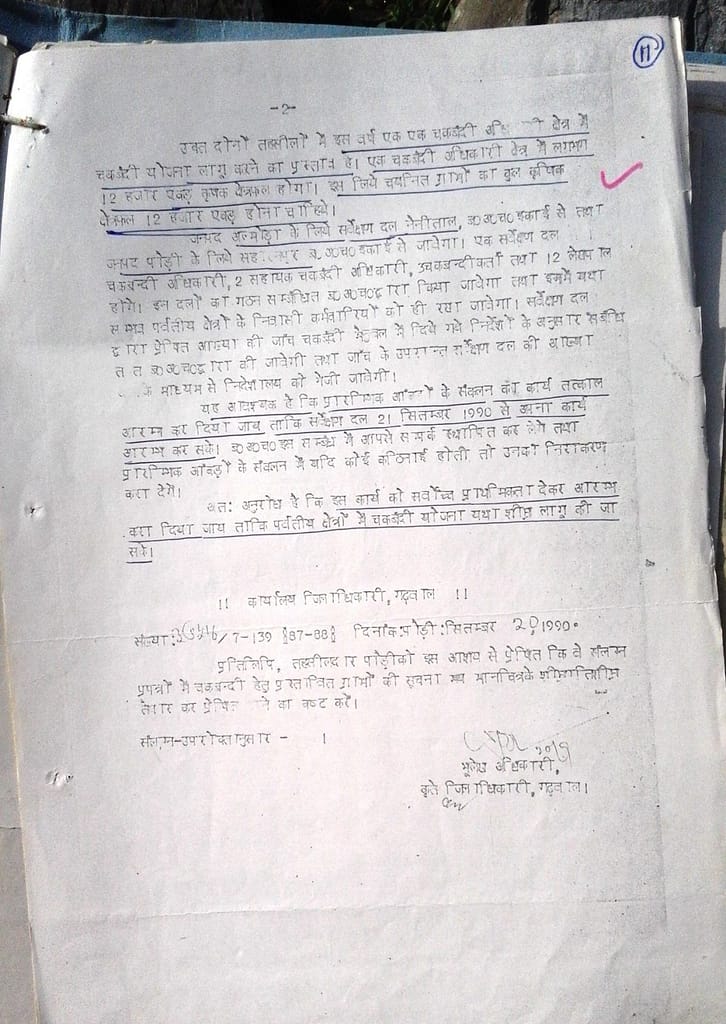 11
-2-
उक्त दोनों तहसीलों में इस वर्ष एक एक चकबंदी क्षेत्र में
चकबंदी योजना लागू करने का प्रस्ताव है। एक चकबंदी अधिकारी क्षेत्र में लगभग
12 हजार एकड़ कृषक क्षेत्रफल होगा। इस लिये चयनित ग्रामों का कुल कृषिक
क्षेत्रफल 12 हजार एकड़ होना चाहिये।
जनपद अल्मोड़ा के लिये सर्वेक्षण दल नैनीताल, ब0अ0च0 इकाई से तथा
जनपद पौड़ी के लिये ब0अ0च0 इकाई से जावेगा। एक सर्वेक्षण दल
चकबन्दी अधिकारी, 2 सहायक चकबंदी अधिकारी, चकबन्दीकर्ता तथा 12 लेखपाल
होंगे। इन दलों का गठन सम्बन्धित ब0अ0च0द्वारा किया जावेगा तथा इनमें यथा
सम्भव पर्वतीय क्षेत्रों के निवासी कर्मचारियों को ही रखा जावेगा। सर्वेक्षण दल
द्वारा प्रेषित आख्या की जाँच चकबंदी में दिये गये निर्देशों के अनुसार संबंधि
त ब0अ0च0द्वारा की जावेगी तथा जाँच के उपरान्त सर्वेक्षण दल की आख्या
के माध्यम से निदेशालय को भेजी जावेगी।
यह आवश्यक है कि प्रारम्भिक आंकड़ों के संकलन का कार्य तत्काल
आरम्भ कर दिया जाय ताकि सर्वेक्षण दल 21 सितम्बर 1990 से अपना कार्य
आरम्भ कर सके। ब0अ0च0 इस सम्बंध में आपसे सम्पर्क स्थापित कर लेंगे तथा
प्रारम्भिक आंकड़ों के संकलन में यदि कोई कठिनाई होती तो उनका निराकरण
करा देंगे।
अतः अनुरोध है कि इस कार्य को सर्वोच्च प्राथमिकता देकर आरम्भ
करा दिया जाय ताकि पर्वतीय क्षेत्रों में चकबंदी योजना यथा शीघ्र लागू की जा
सके।
!! कार्यालय जिलाधिकारी, गढ़वाल !!
संख्या: /7-139 (87-88) दिनांक:पौड़ी:सितम्बर 20 1990.
प्रतिलिपि, तहसीलदार पौड़ीको इस आशय से प्रेषित कि वे संलग्न
प्रपत्रों में चकबन्दी हेतु प्रस्तावित ग्रामों की सूचना मय मानचित्रके शीघ्रातिशीघ्र
तैयार कर प्रेषित का कष्ट करें।
संलग्न-उपरोक्तानुसार - ।
भूलेख अधिकारी,
कृते जिलाधिकारी, गढ़वाल।